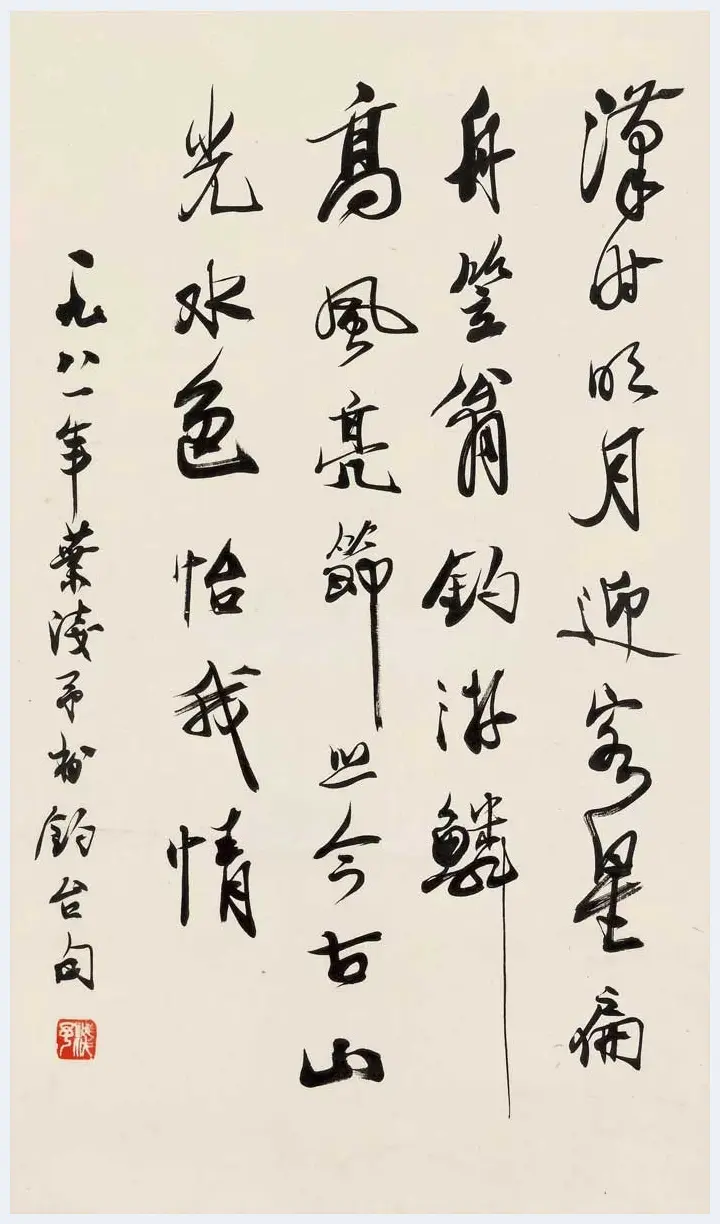 漢时明月迎客星偏
舟笠翁釣游鱗
高風亮節照今古山
光水色怡我情
一九八一年葉淺予於釣台句
淺予